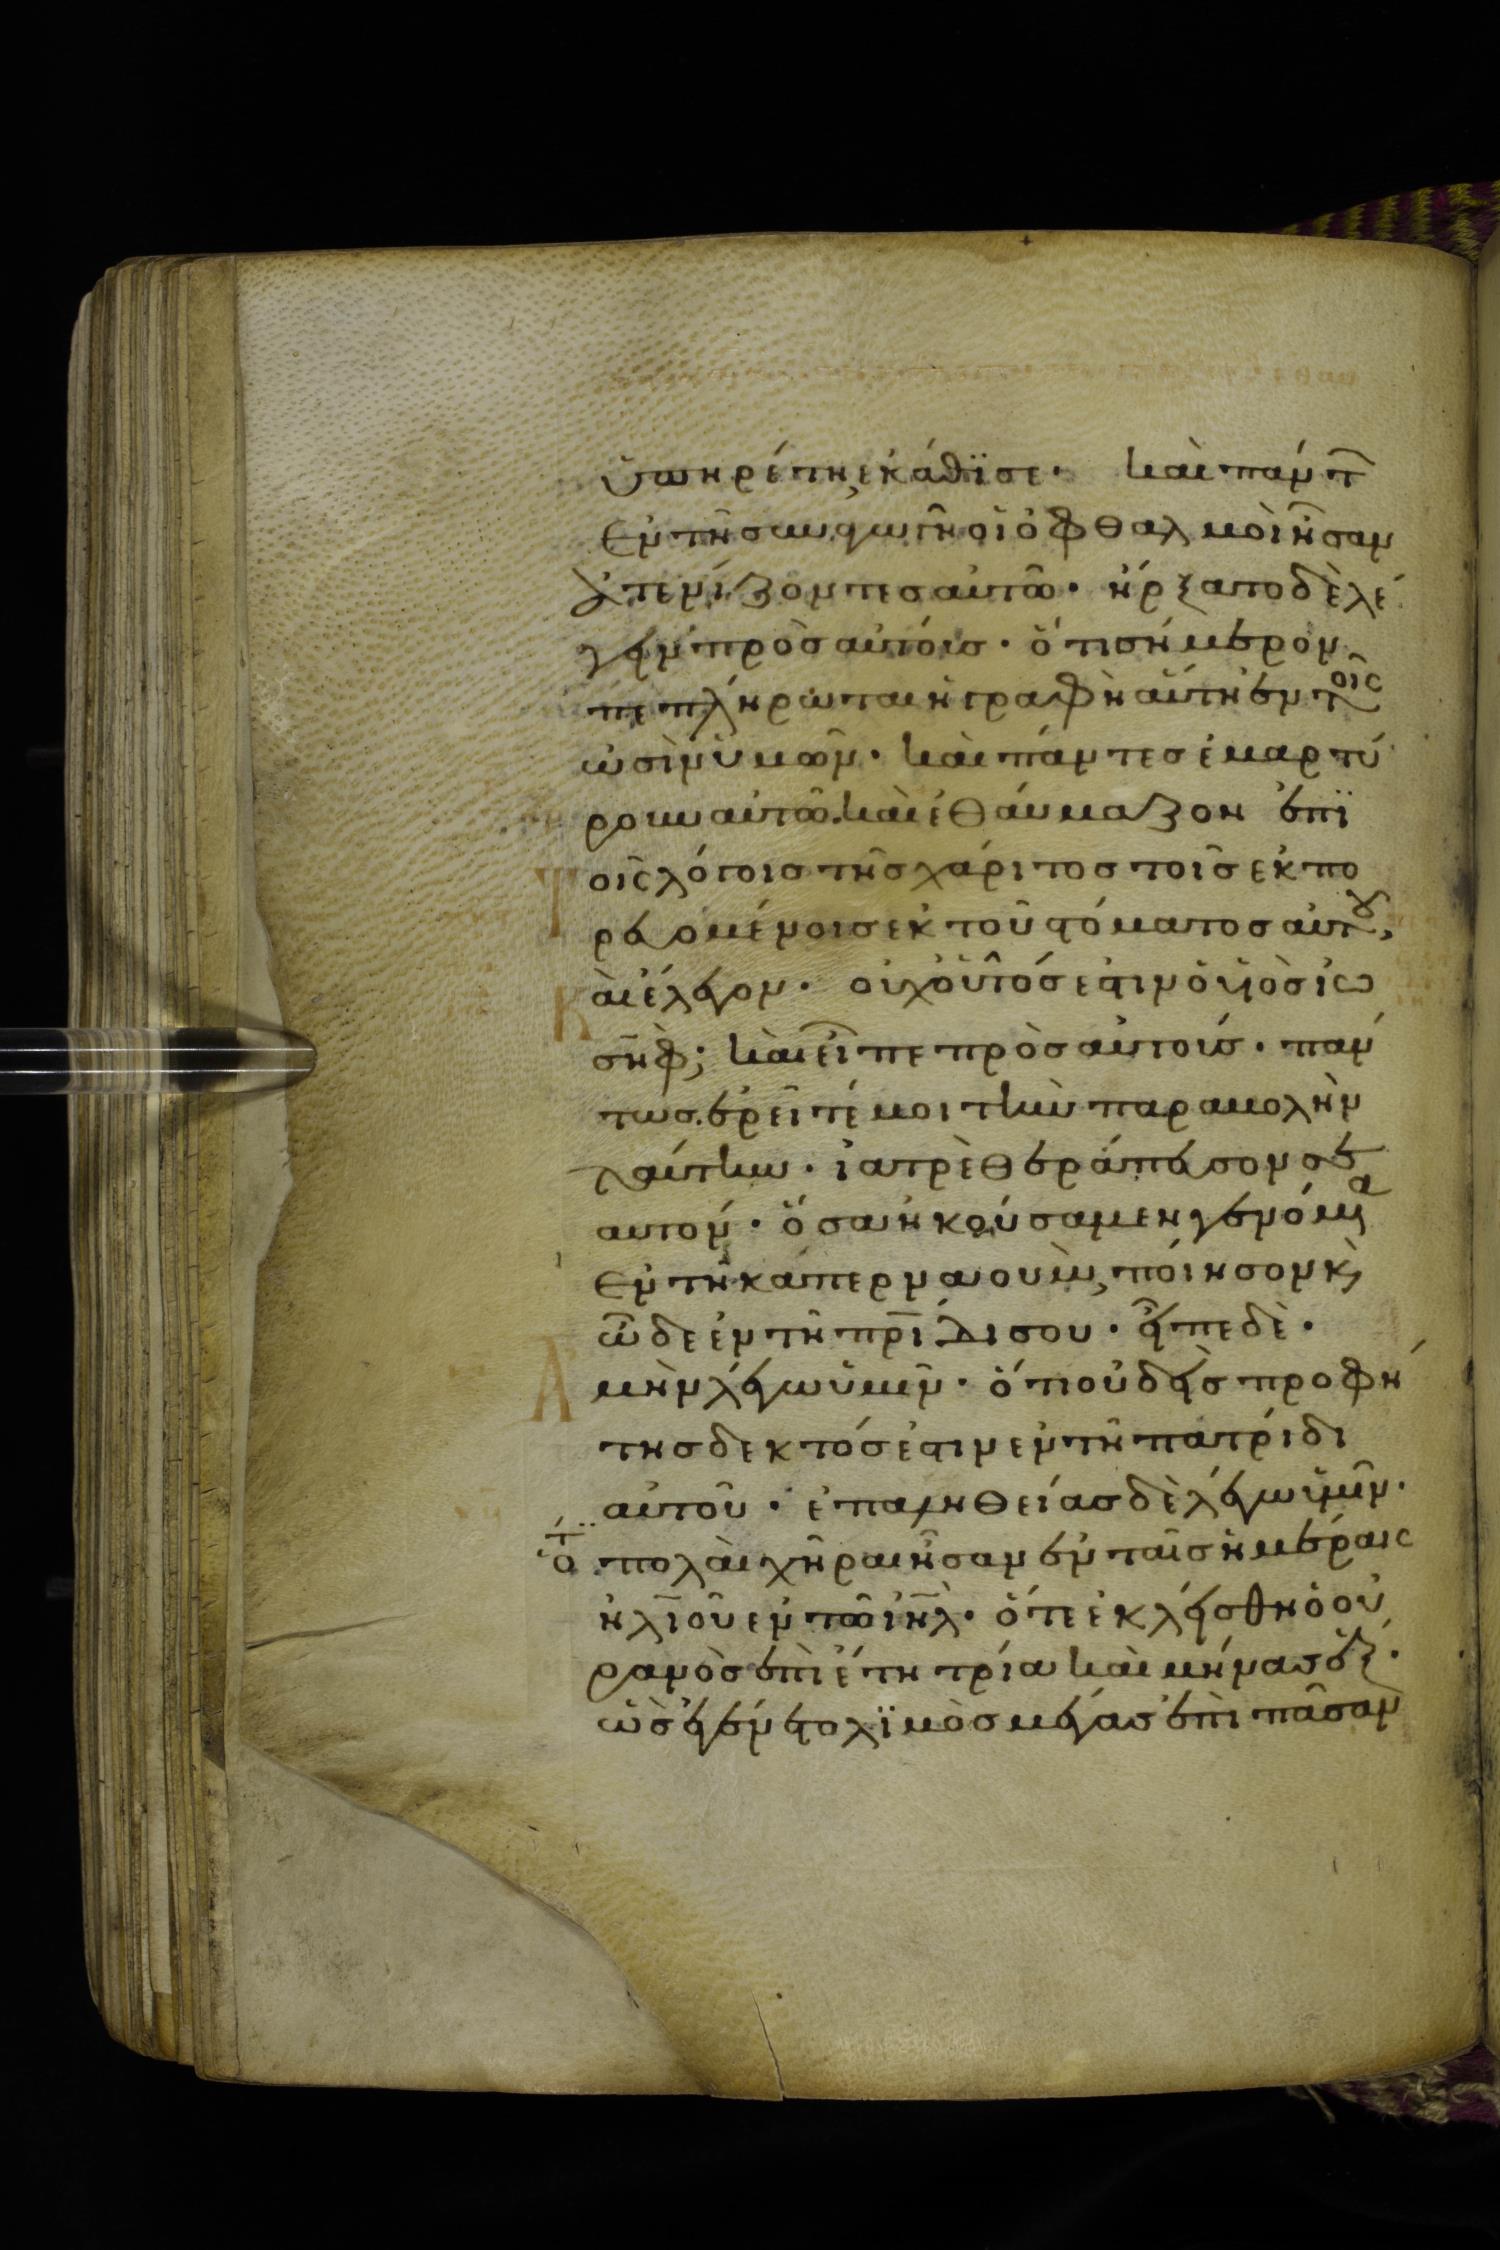 ὑπηρέτη, ἐκάθϊσε· καὶ πάντ
ἐν τῆ συναγωγῆ οἱ ὀφθαλμοὶ ἦσαν
ἀτενίζοντες αὐτῶ· ἤρξατο δὲ λέ
γειν πρὸς αὐτούς· ὅτι σήμερον
πεπλήρωται ἡ γραφὴ αὕτη ἐν τοῖς
ὠσὶν ὑμῶν· καὶ πάντες ἐμαρτύ
ρουν αὐτῶ. καὶ ἐθάυμαζον ἐπϊ
Τοῖς λόγοις τῆς χάριτος τοῖς ἐκπο
ρευομένοις ἐκ τοῦ στόματος αὐτοῦ,
Καὶ ἔλεγον· οὐχ οὗτός ἐστιν ὁ υἱὸς ἰω
σὴφ; καὶ εἶπε πρὸς αὐτούς· πάν
τως ἐρεῖτέ μοι τὴν παραβολὴν
ταύτην· ἰατρὲ θεράπευσον σε
αυτόν· ὅσα ἠκούσαμεν γενόμενα
ἐν τῆ καπερναουμ, πόιησον κὶ
ὧδε ἐν τῆ πρίδι σου· εἶπε δὲ·
Ἀμὴν λέγω ὑμῖν· ὅτι οὐδεὶς προφή
της δεκτός ἐστιν ἐν τῆ πατρίδι
αὐτοῦ· ἐπ αληθείας δὲ λέγω ὑμῖν·
ὅτ πολαὶ χῆραι ἦσαν ἐν ταῖς ἡμέραις
ἡλϊοῦ ἐν τῶ ἰηλ· ὅτε ἐκλείσθη ὁ οὐ
ρανὸς ἐπὶ ἔτη τρία καὶ μήνας ἓξ·
ὡς ἐγένετο λϊμὸς μέγας ἐπὶ πᾶσαν